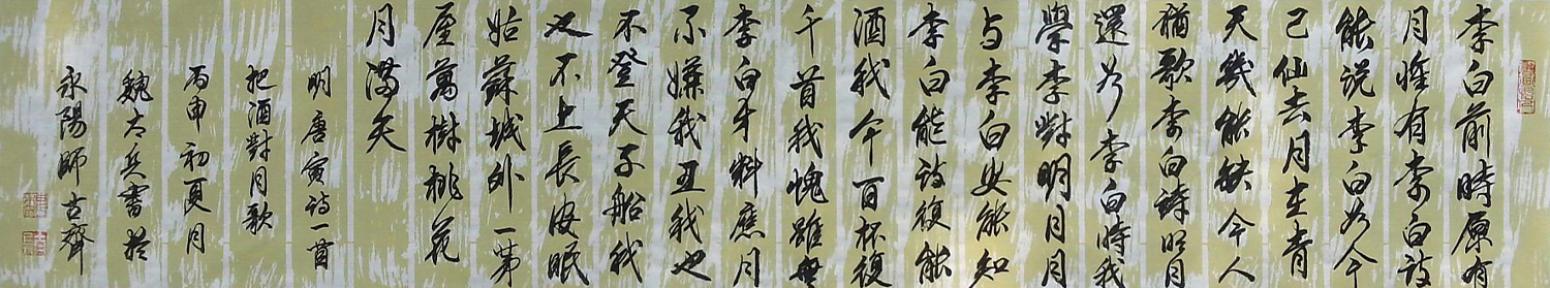 李白前時原有
月惟有李白詩
能説李白如今
已仙去月在青
天幾能缺今人
猶歌李白詩明月
還如李白時我
學李對明月月
与李白安能知
李白能詩復能
酒我今百杯復
千首我愧雖無
李白才料應月
不嫌我丑我也
不登天子船我
也不上長安眠
姑蘇城外一茅
屋萬樹桃花
月滿天
明 唐寅詩一首
把酒對月歌
丙申初夏月
魏太兵書於
永陽師古齋